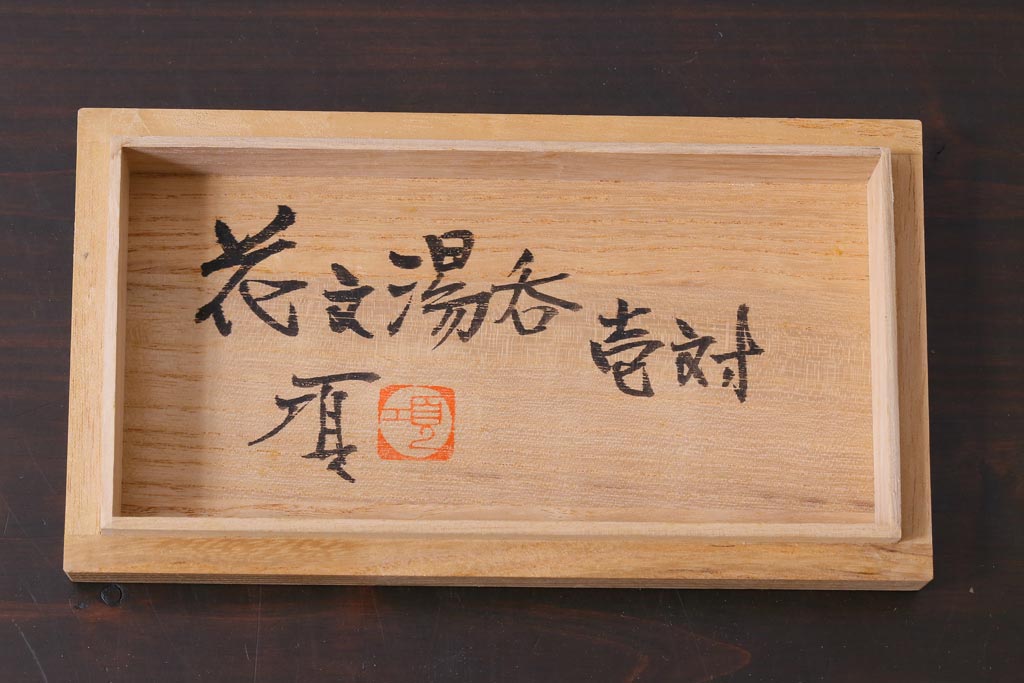 花文湯呑 壱対
項
項